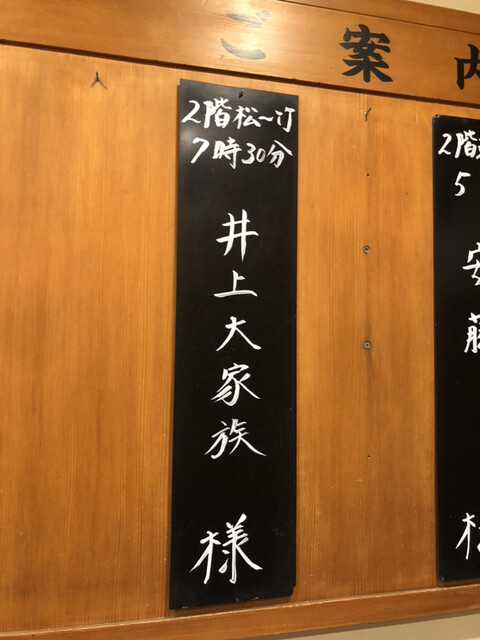 ご案内
2階松一汀
7時30分
井上大家族
様
2階
5
安藤
様